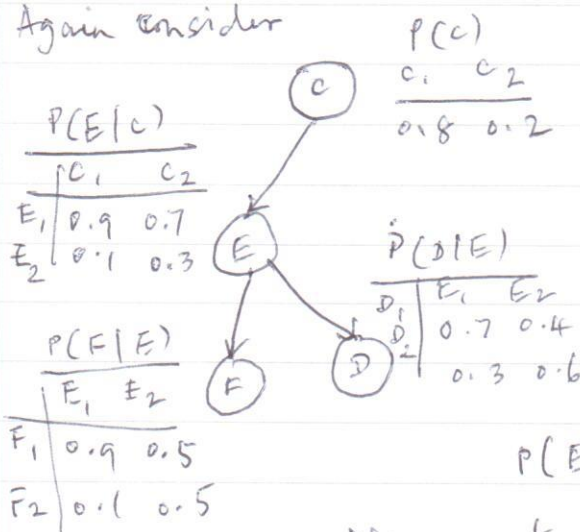 Again consider
P(C)
C₁ C₂
0.8 0.2
C
P(E|C)
C₁ C₂
E₁ 0.9 0.7
E₂ 0.1 0.3
E
P(D|E)
E₁ E₂
D₁ 0.7 0.4
D₂ 0.3 0.6
P(F|E)
E₁ E₂
F₁ 0.9 0.5
F₂ 0.1 0.5
F
D
P(E